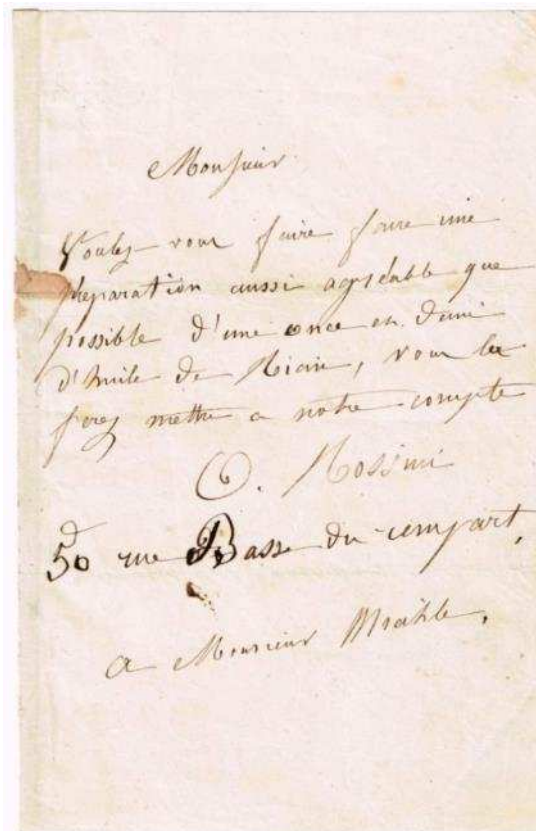 Monsieur
Voulez vous faire faire une
preparation aussi agréable que
possible d'une once et demi
d'huile de Ricin, vous la
ferez mettre a notre compte
O. Rossini
50 rue Basse du rempart,
a Monsieur